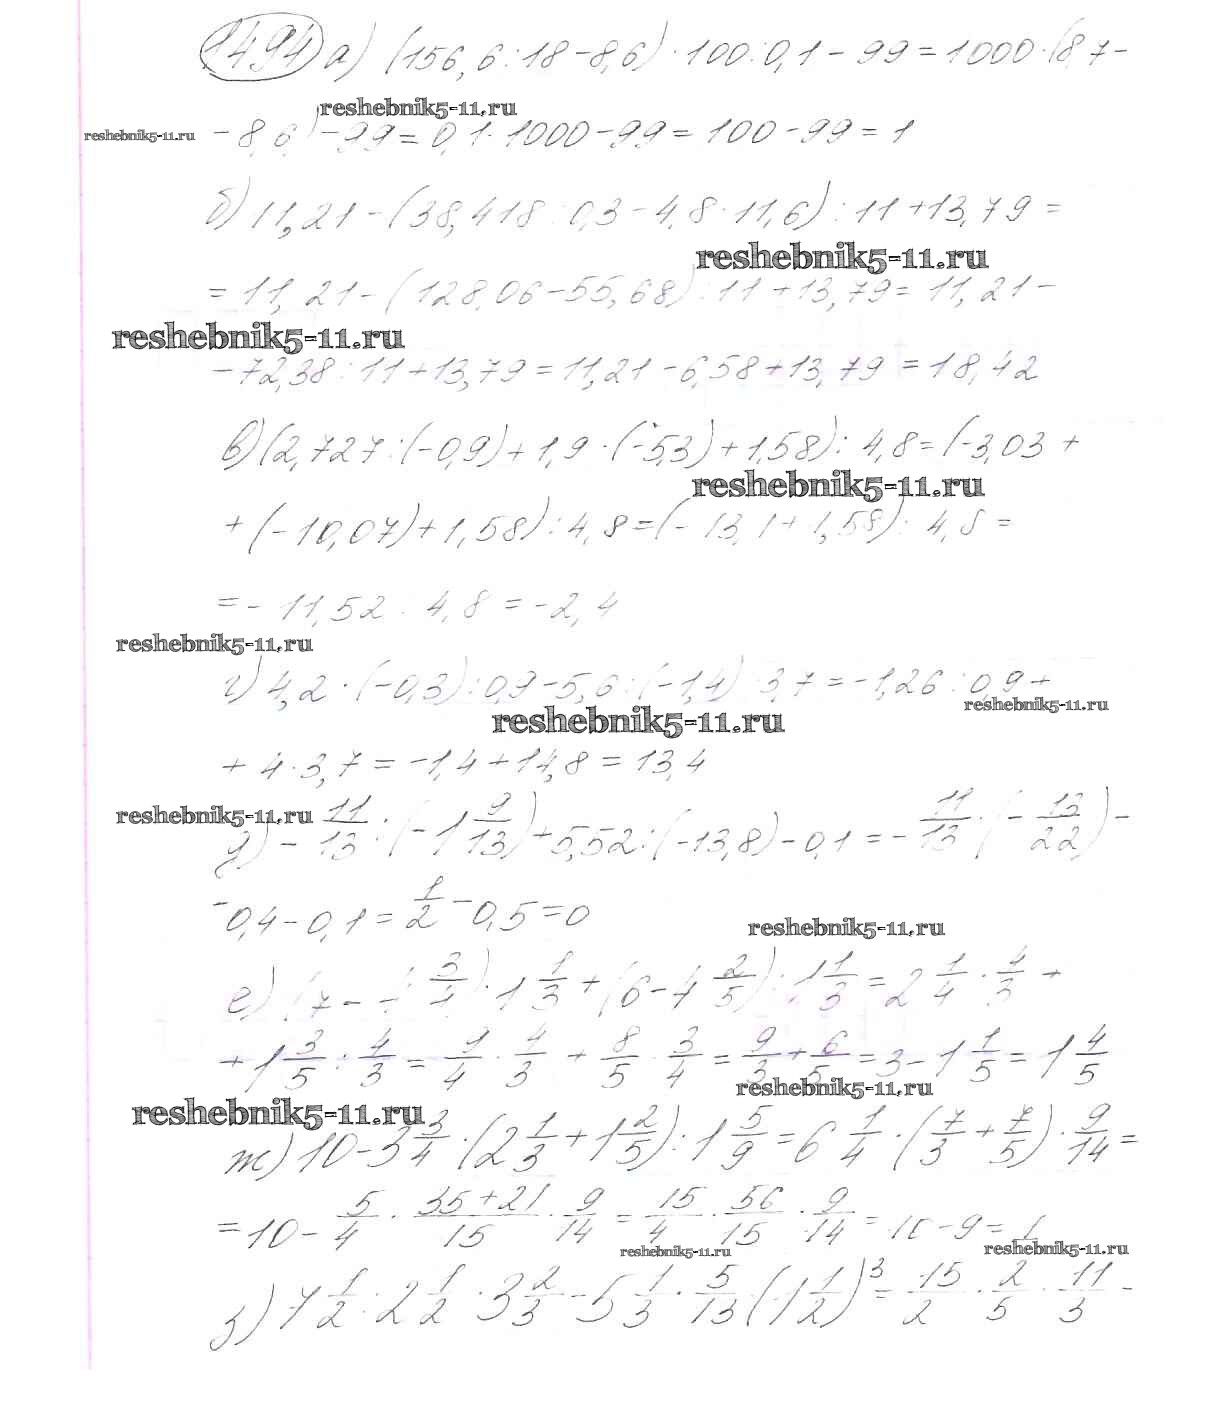 1494 а) (156,6:18-8,6)·100:0,1-99=1000·(8,7-
reshebnik5-11.ru
reshebnik5-11.ru
-8,6)-99=0,1·1000-99=100-99=1
б) 11,21-(38,418:0,3-4,8·11,6):11+13,79=
reshebnik5-11.ru
=11,21-(128,06-55,68):11+13,79=11,21-
reshebnik5-11.ru
-72,38:11+13,79=11,21-6,58+13,79=18,42
в) (2,727:(-0,9)+1,9·(-5,3)+1,58):4,8=(-3,03+
reshebnik5-11.ru
+(-10,07)+1,58):4,8=(-13,1+1,58):4,8=
=-11,52:4,8=-2,4
reshebnik5-11.ru
г) 4,2·(-0,3):0,9-5,6:(-1,4)·3,7=-1,26:0,9+
reshebnik5-11.ru
reshebnik5-11.ru
+4·3,7=-1,4+14,8=13,4
reshebnik5-11.ru
д) -11/13:(-1 9/13)+5,52:(-13,8)-0,1=-11/13·(-13/22)-
-0,4-0,1=1/2-0,5=0
reshebnik5-11.ru
е) (7- 3/4)·1 1/3+(6-4 2/5):1 1/3=2 1/4·4/3+
+1 3/5:4/3=9/4·4/3+8/5·3/4=9/3+6/5=3-1 1/5=1 4/5
reshebnik5-11.ru
reshebnik5-11.ru
ж) 10-3 3/4·(2 1/3+1 2/5):1 5/9=6 1/4·(7/3+7/5)·9/14=
=10-5/4·35+21/15·9/14=15/4·56/15·9/14=10-9=1
reshebnik5-11.ru
reshebnik5-11.ru
з) 7 1/2:2 1/2·3 2/3-5 1/3·5/13(1 1/2)³=15/2·2/5·11/3-